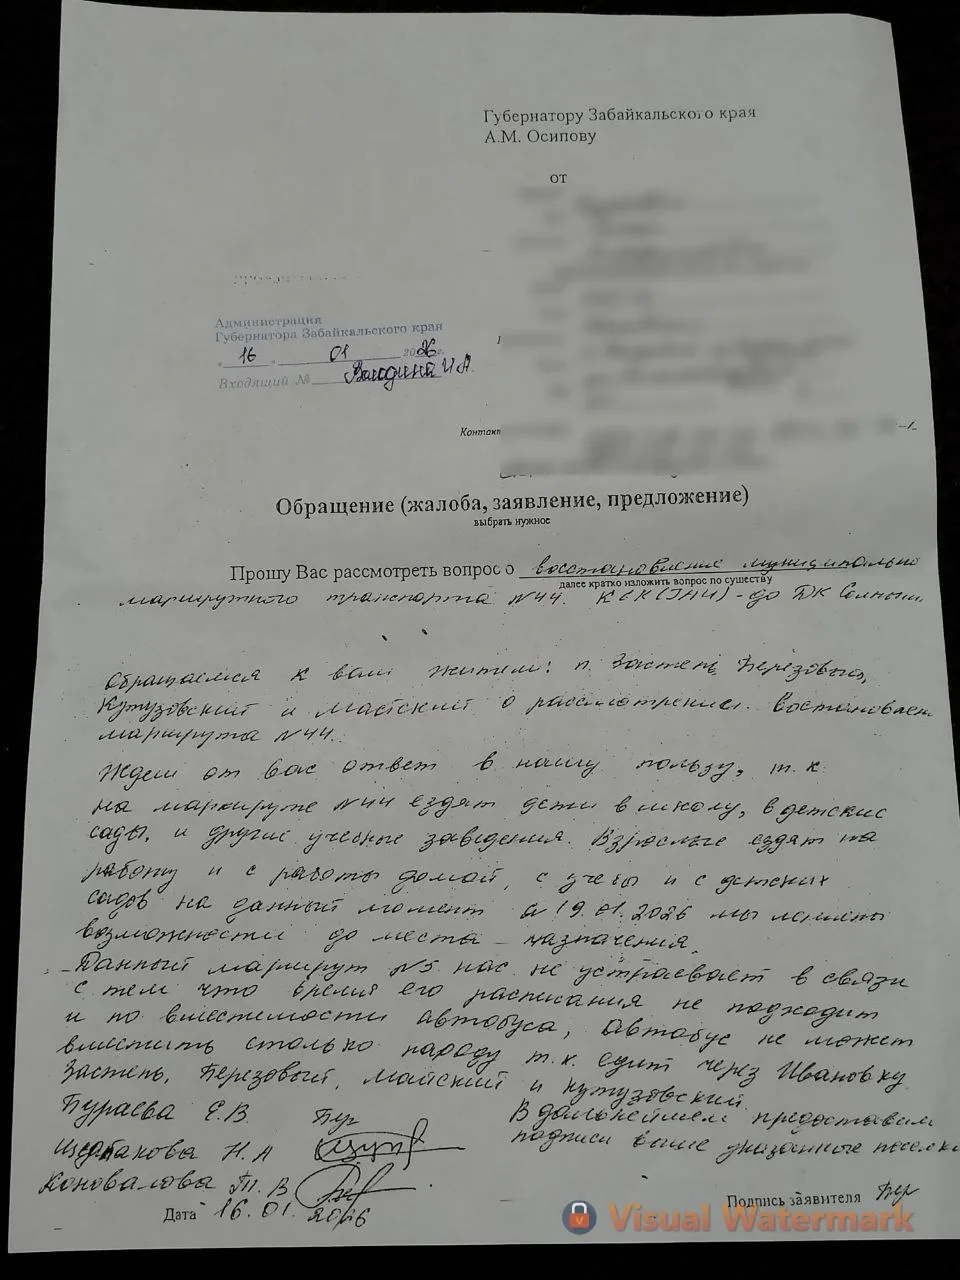 Губернатору Забайкальского края
А.М. Осипову
от
Администрация
Губернатора Забайкальского края
" 16 " 01 2026 г.
Входящий №
Контакт
Обращение (жалоба, заявление, предложение)
выбрать нужное
Прошу Вас рассмотреть вопрос о восстановление муниципально
далее кратко изложить вопрос по существу
маршрутного транспорта №44. КСК - до ДК
Обращаемся к вам жители: п. Застепь, Березовый,
Кутузовский и Майский о рассмотрении. востановлен
маршрута №44.
Ждем от вас ответ в нашу пользу, т.к.
на маршруте №44 ездят дети в школу, в детские
сады, и другие учебные заведения. Взрослые ездят на
работу и с работы домой, с учебы и с детских
садов на данный момент с 19.01.2026 мы лишены
возможности до места - назначения.
- Данный маршрут №5 нас не устраевает в связи
с тем что время его расписания не подходит
и по вместемости автобуса, автобус не может
вместить столько народу т.к. едит через Ивановку
Застепь, Березовый, Майский и Кутузовский.
Пураева Е.В.
В дальнейшем предоставим
подписи выше указанные поселки
Н.А
Коновалова В
Подпись заявителя
Дата 16.01.2026
Visual Watermark